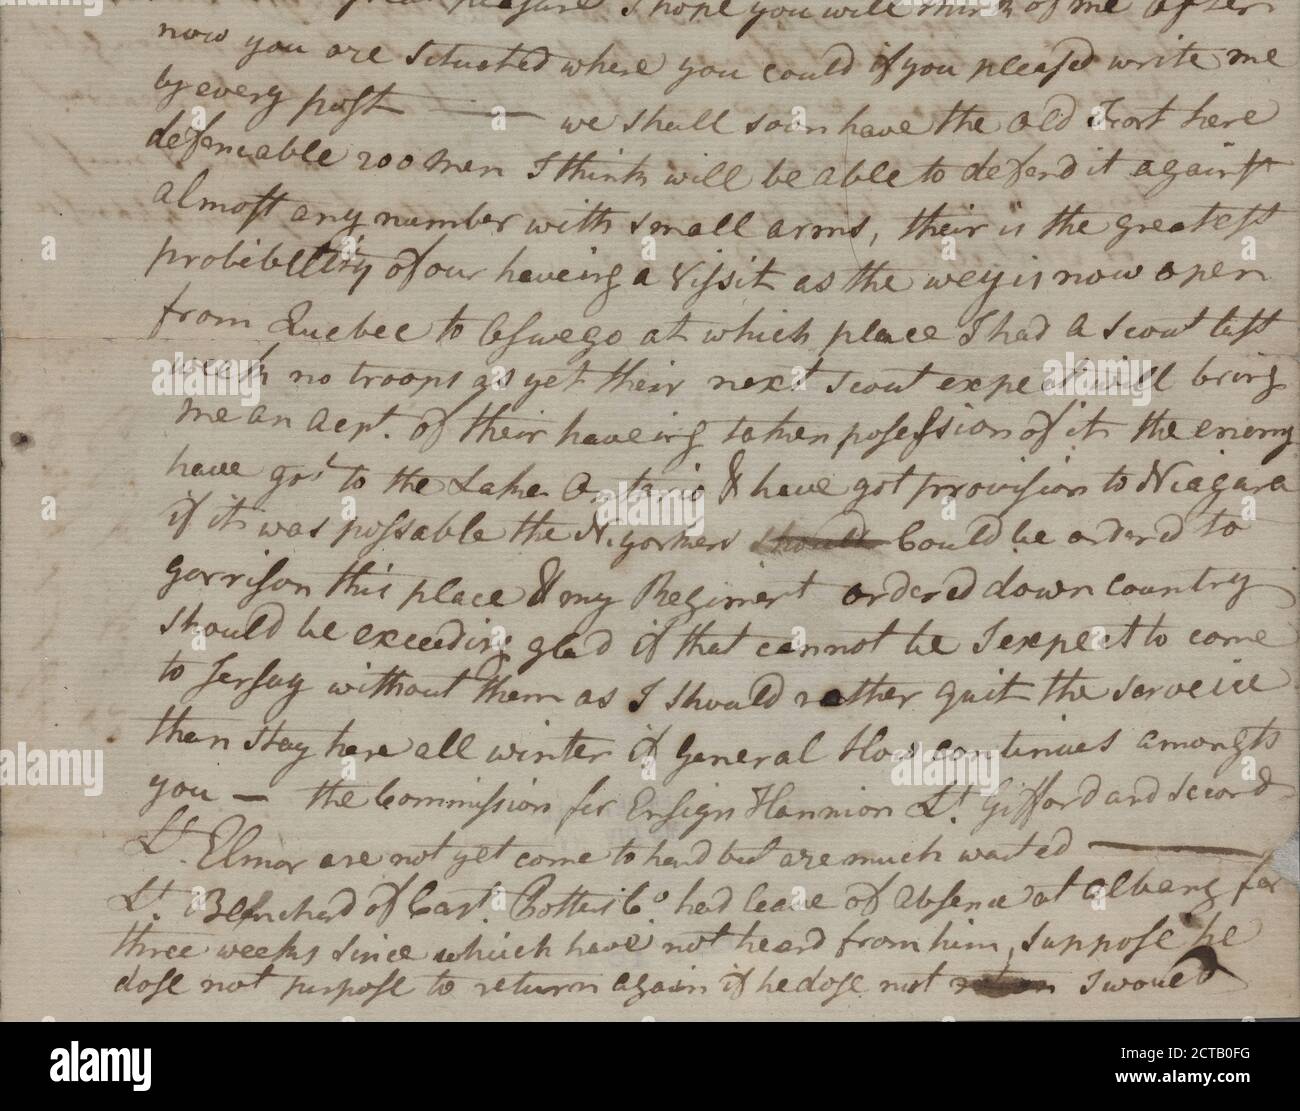 great pleasure I hope you will think of me often
now you are situated where you could if you pleased write me
by every post —— we shall soon have the old Front here
defenciable 200 men I think will be able to defend it against
almost any number with small arms, their is the greatest
probibility of our haveing a Vissit as the wey is now open
from Quebec to Oswego at which place I had a scout last
week no troops as yet their next scout expect will bring
me an acpt. of their haveing taken possession of it the enemy
have got to the Lake Ontario & have got provision to Niagara
if it was possable the N. yorkers should Could be ordered to
garrison this place & my Regiment ordered down country
should be exceeding glad if that cannot be I expect to come
to Jersay without them as I should rather quit the serveice
then stay here all winter if General How continues amongts
you — the Commission for Ensign Hannion Lt. Gifford and second
Lt. Elmor are not yet come to hand but are much wanted ——
Lt. Blanchard of Capt. Potters Co. had leave of Absence at Albany for
three weeks since which have not heard from him, suppose he
dose not purpose to return again if he dose not I would
alamy
Image ID: 2CTB0FG
www.alamy.com